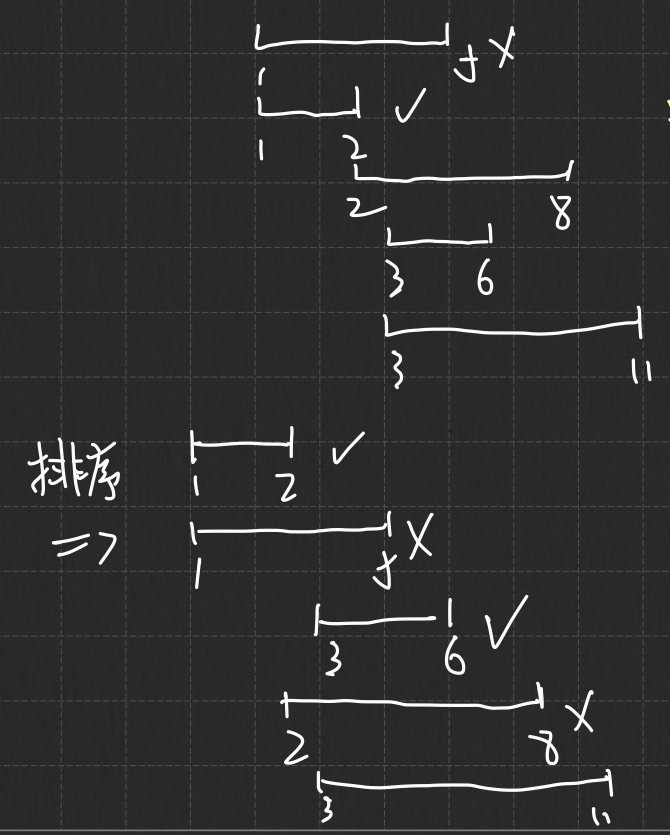 1 5 X
1 2 ✓
2 8
3 6
3 11
排序 1 2 ✓
=> 1 5 X
3 6 ✓
2 8 X
3 11